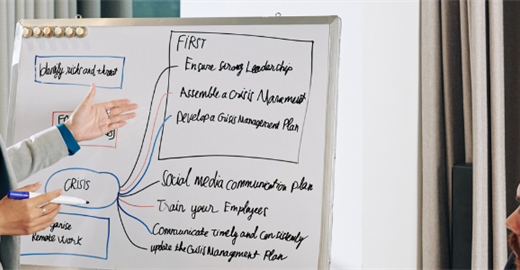 Identify risks and threat
CRISIS
Remote Work
FIRST
Ensure Strong Leadership
Assemble a Crisis
Develop a Crisis Management Plan
Social media communication plan
Train your Employees
Communicate Timely and Consistenly
update the Crisis Management Plan